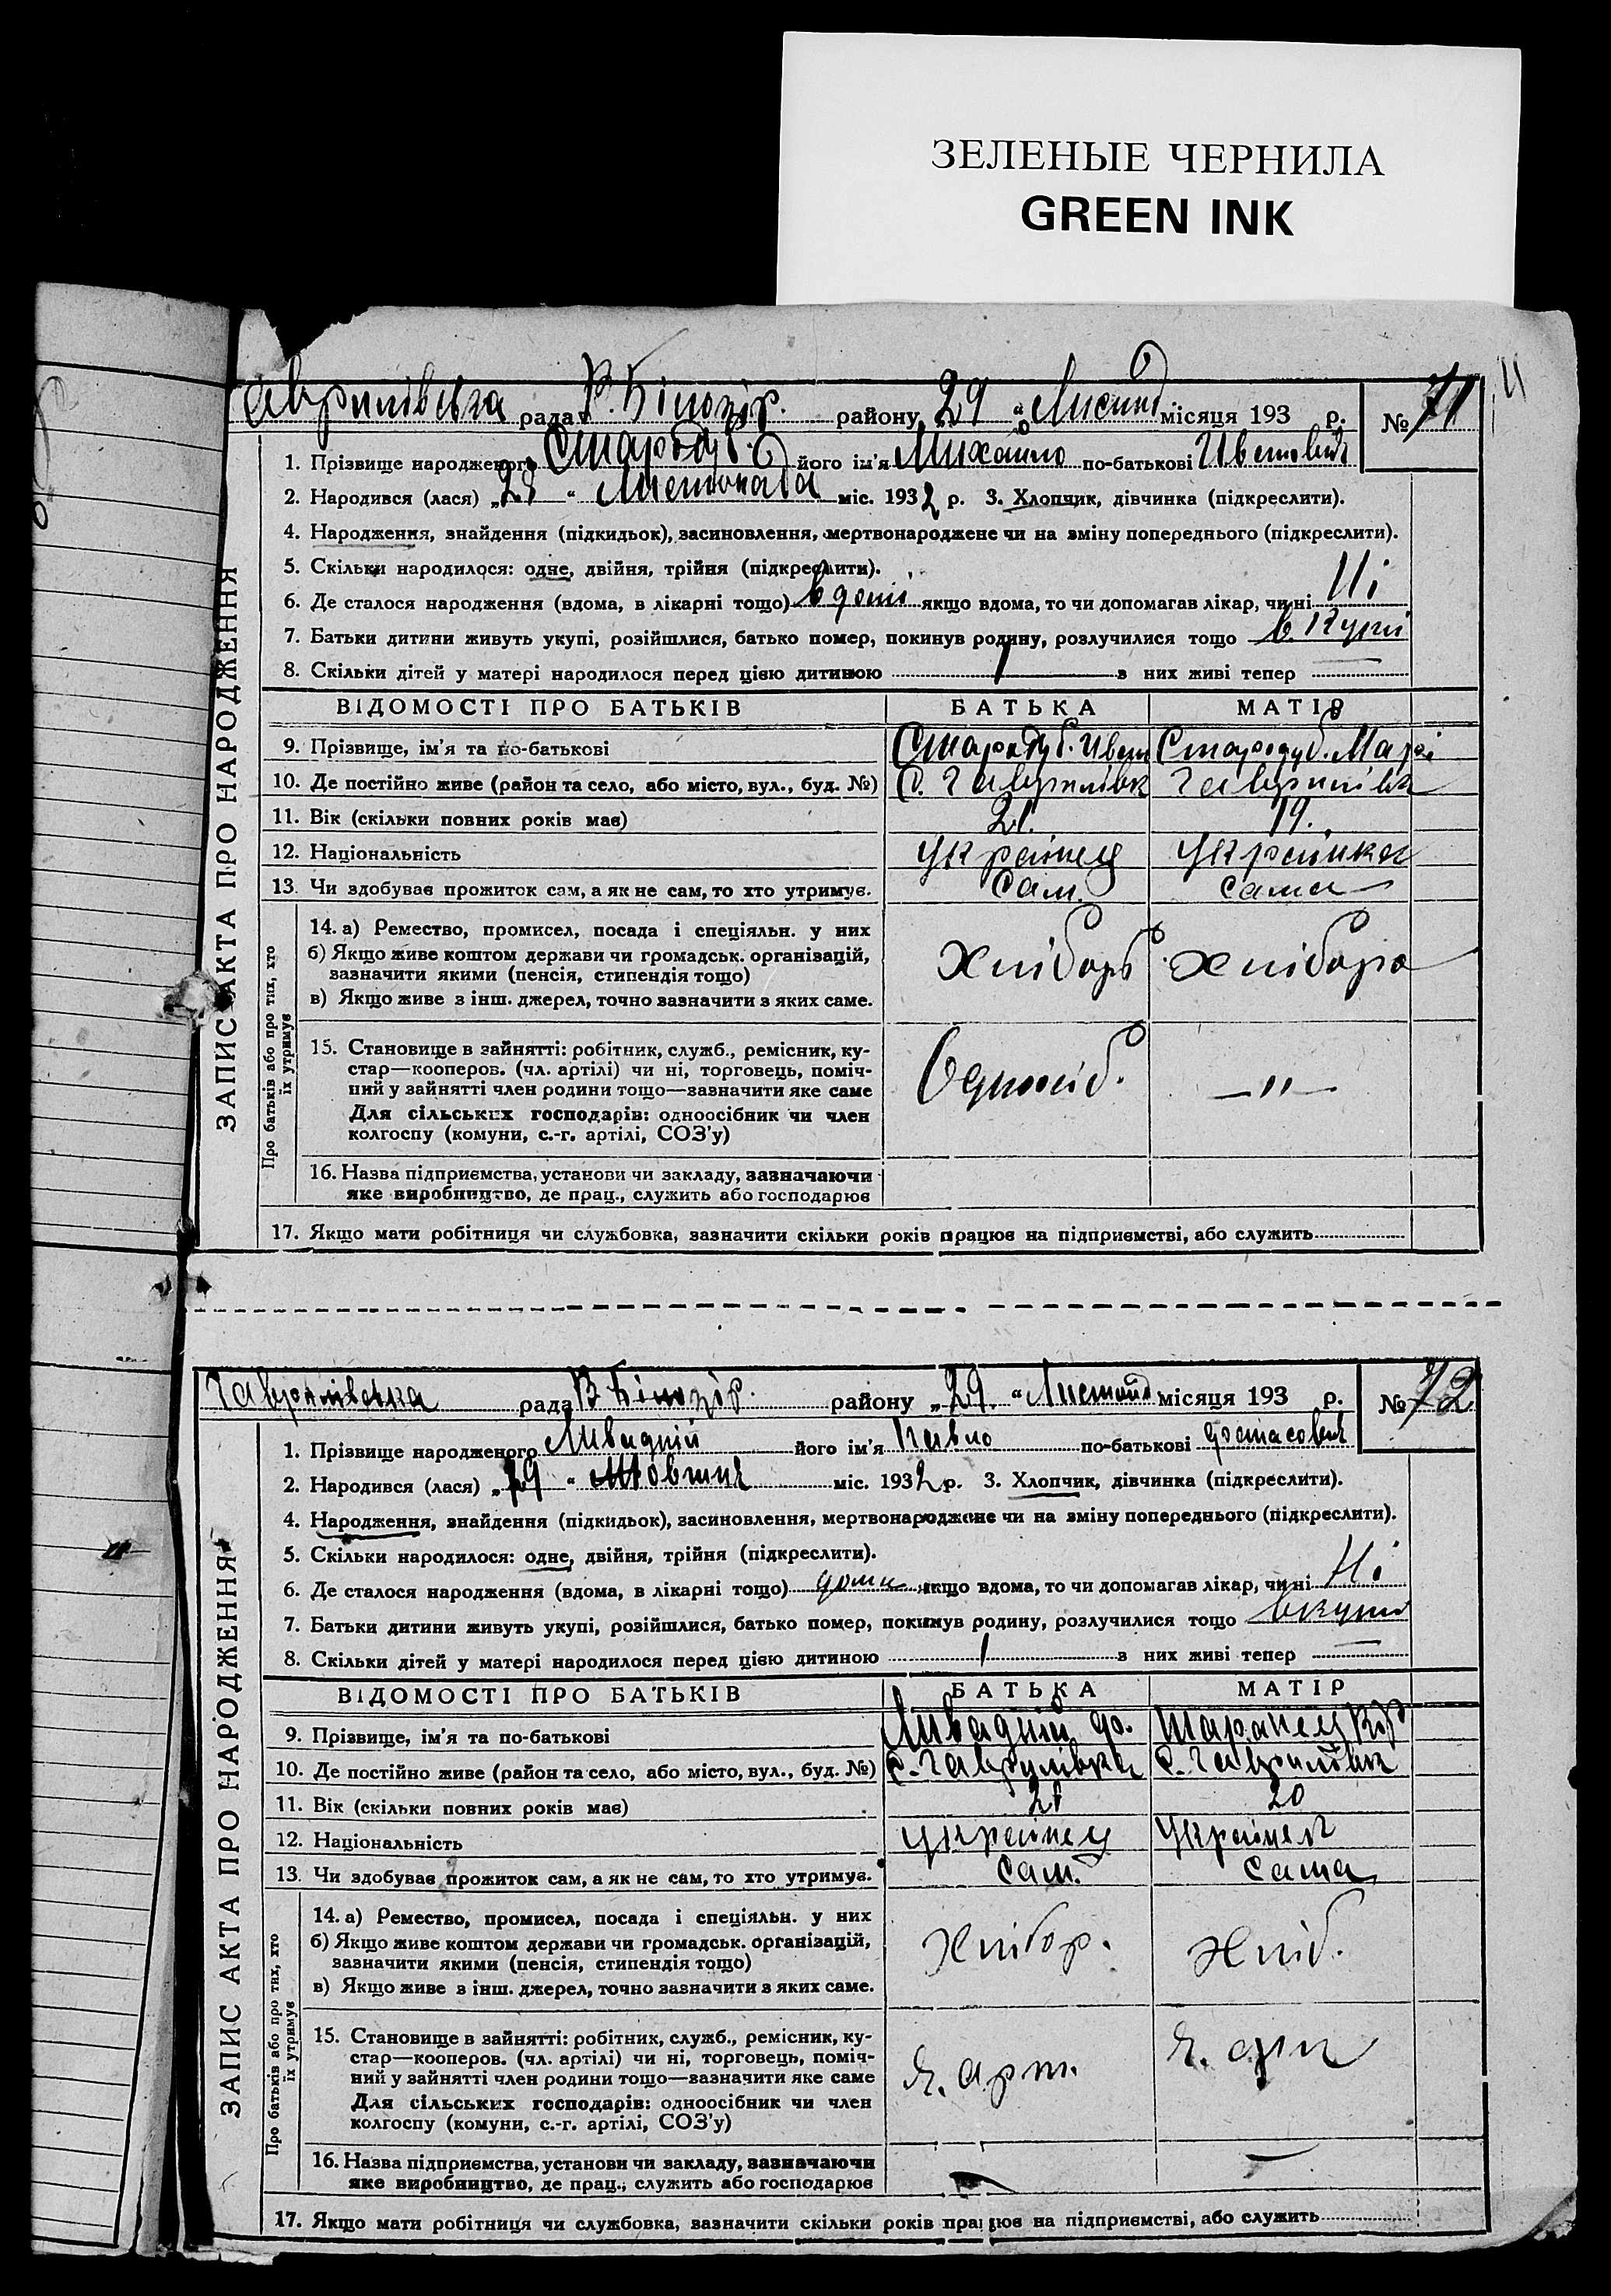 ЗЕЛЕНЫЕ ЧЕРНИЛА
GREEN INK
рада В. Білозір. району „29 “ Листоп місяця 193 р. № 71
1. Прізвище народженого Стародуб. його ім'я Михайло по-батькові
2. Народився (лася) „ “ Листопада міс. 1932 р. 3. Хлопчик, дівчинка (підкреслити).
4. Народження, знайдення (підкидьок), засиновлення, мертвонароджене чи на зміну попереднього (підкреслити).
5. Скільки народилося: одне, двійня, трійня (підкреслити).
6. Де сталося народження (вдома, в лікарні тощо) в домі якщо вдома, то чи допомагав лікар, чи ні Ні
7. Батьки дитини живуть укупі, розійшлися, батько помер, покинув родину, розлучилися тощо в. Купі
8. Скільки дітей у матері народилося перед цією дитиною 1 з них живі тепер —
ЗАПИС АКТА ПРО НАРОДЖЕННЯ
ВІДОМОСТІ ПРО БАТЬКІВ БАТЬКА МАТІР
9. Прізвище, ім'я та по-батькові Стародуб. Іван Стародуб. Марі
10. Де постійно живе (район та село, або місто, вул., буд. №) С. Гаврилівк Гаврилівк
11. Вік (скільки повних років має) 21. 19.
12. Національність Українец Українка
13. Чи здобуває прожиток сам, а як не сам, то хто утримує. Сам. сама
Про батьків або про тих, хто
їх утримує
14. а) Ремество, промисел, посада і спеціяльн. у них
б) Якщо живе коштом держави чи громадськ. організацій,
зазначити якими (пенсія, стипендія тощо) Хлібороб
в) Якщо живе з інш. джерел, точно зазначити з яких саме.
15. Становище в зайнятті: робітник, служб., ремісник, ку-
стар—кооперов. (чл. артілі) чи ні, торговець, поміч-
ний у зайнятті член родини тощо—зазначити яке саме Одноосіб. —"—
Для сільських господарів: одноосібник чи член
колгоспу (комуни, с.-г. артілі, СОЗ'у)
16. Назва підприємства, установи чи закладу, зазначаючи
яке виробництво, де прац., служить або господарює
17. Якщо мати робітниця чи службовка, зазначити скільки років працює на підприємстві, або служить
Гаврилівська рада В Білозір. району „29. “ Листопад місяця 193 р. № 72
1. Прізвище народженого Ливадній його ім'я Павло по-батькові
2. Народився (лася) „29 “ міс. 1932 р. 3. Хлопчик, дівчинка (підкреслити).
4. Народження, знайдення (підкидьок), засиновлення, мертвонароджене чи на зміну попереднього (підкреслити).
5. Скільки народилося: одне, двійня, трійня (підкреслити).
6. Де сталося народження (вдома, в лікарні тощо) дома якщо вдома, то чи допомагав лікар, чи ні Ні
7. Батьки дитини живуть укупі, розійшлися, батько помер, покинув родину, розлучилися тощо вкупі
8. Скільки дітей у матері народилося перед цією дитиною 1 з них живі тепер —
ЗАПИС АКТА ПРО НАРОДЖЕННЯ
ВІДОМОСТІ ПРО БАТЬКІВ БАТЬКА МАТІР
9. Прізвище, ім'я та по-батькові Ливадній
10. Де постійно живе (район та село, або місто, вул., буд. №) с. Гаврилівка с. Гаврилівк
11. Вік (скільки повних років має) 21 20
12. Національність Українец
13. Чи здобуває прожиток сам, а як не сам, то хто утримує. Сам. Сама
Про батьків або про тих, хто
їх утримує
14. а) Ремество, промисел, посада і спеціяльн. у них
б) Якщо живе коштом держави чи громадськ. організацій,
зазначити якими (пенсія, стипендія тощо) Хлібор. Хліб.
в) Якщо живе з інш. джерел, точно зазначити з яких саме.
15. Становище в зайнятті: робітник, служб., ремісник, ку-
стар—кооперов. (чл. артілі) чи ні, торговець, поміч-
ний у зайнятті член родини тощо—зазначити яке саме ч. арт.
Для сільських господарів: одноосібник чи член
колгоспу (комуни, с.-г. артілі, СОЗ'у)
16. Назва підприємства, установи чи закладу, зазначаючи
яке виробництво, де прац., служить або господарює
17. Якщо мати робітниця чи службовка, зазначити скільки років працює на підприємстві, або служить